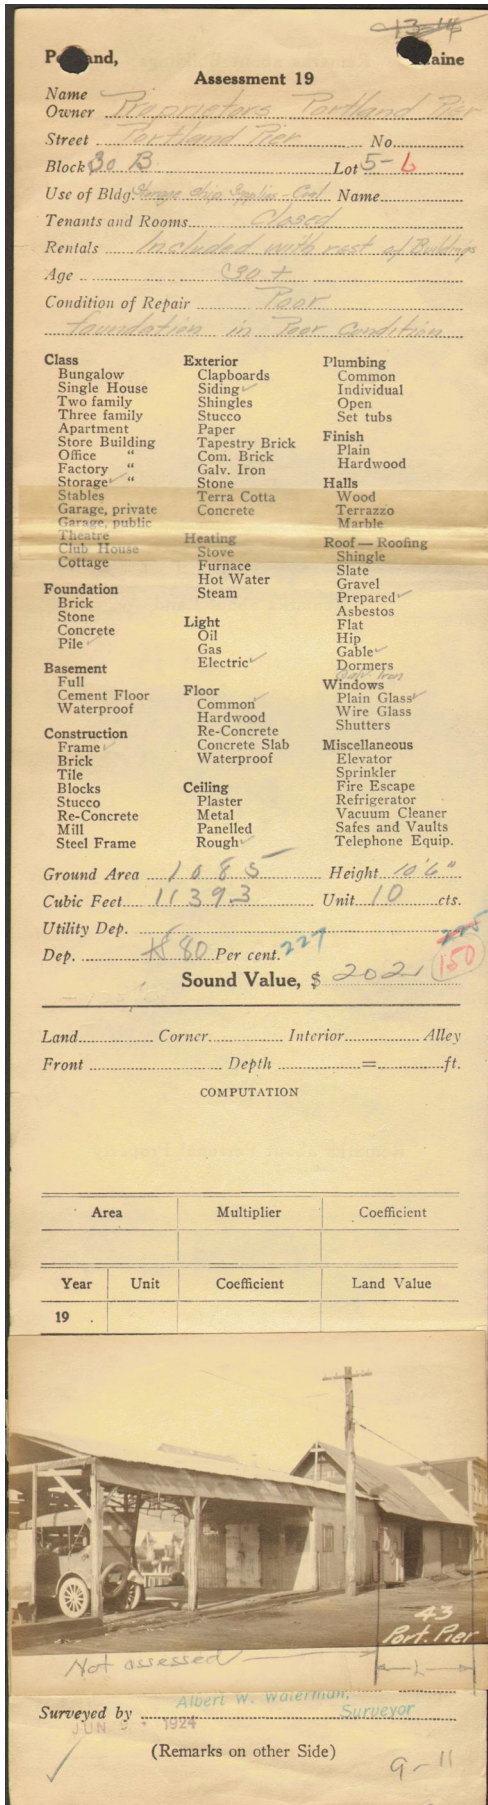 13-14
Portland, Maine
Assessment 19
Name
Owner Proprietors Portland Pier
Street Portland Pier No.
Block 30 B Lot 5-L
Use of Bldg. Storage Ship Supplies - Coal Name
Tenants and Rooms Closed
Rentals Included with rest of Buildings
Age 30 +
Condition of Repair Poor
foundation in Poor Condition
Class
Bungalow
Single House
Two family
Three family
Apartment
Store Building
Office "
Factory "
Storage ✓ "
Stables
Garage, private
Garage, public
Theatre
Club House
Cottage
Foundation
Brick
Stone
Concrete
Pile ✓
Basement
Full
Cement Floor
Waterproof
Construction
Frame ✓
Brick
Tile
Blocks
Stucco
Re-Concrete
Mill
Steel Frame
Exterior
Clapboards
Siding ✓
Shingles
Stucco
Paper
Tapestry Brick
Com. Brick
Galv. Iron
Stone
Terra Cotta
Concrete
Heating
Stove
Furnace
Hot Water
Steam
Light
Oil
Gas
Electric ✓
Floor
Common ✓
Hardwood
Re-Concrete
Concrete Slab
Waterproof
Ceiling
Plaster
Metal
Panelled
Rough ✓
Plumbing
Common
Individual
Open
Set tubs
Finish
Plain
Hardwood
Halls
Wood
Terrazzo
Marble
Roof — Roofing
Shingle
Slate
Gravel
Prepared ✓
Asbestos
Flat
Hip
Gable ✓
Dormers
Galv. Iron
Windows
Plain Glass ✓
Wire Glass
Shutters
Miscellaneous
Elevator
Sprinkler
Fire Escape
Refrigerator
Vacuum Cleaner
Safes and Vaults
Telephone Equip.
Ground Area 1085 Height 10'6"
Cubic Feet 11393 Unit 10 cts.
Utility Dep.
Dep. 80 Per cent. 227 225
150
Sound Value, $ 202
Land Corner Interior Alley
Front Depth = ft.
COMPUTATION
Area Multiplier Coefficient
Year Unit Coefficient Land Value
19
43
Port. Pier
Not assessed L
Surveyed by Albert W. Waterman,
Surveyor
JUN 9 - 1924
(Remarks on other Side)
✓ 9-11